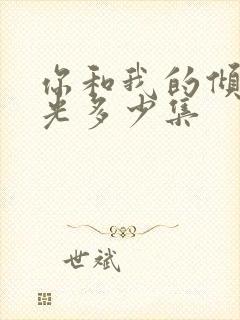 你和我的倾
光多少集
世斌